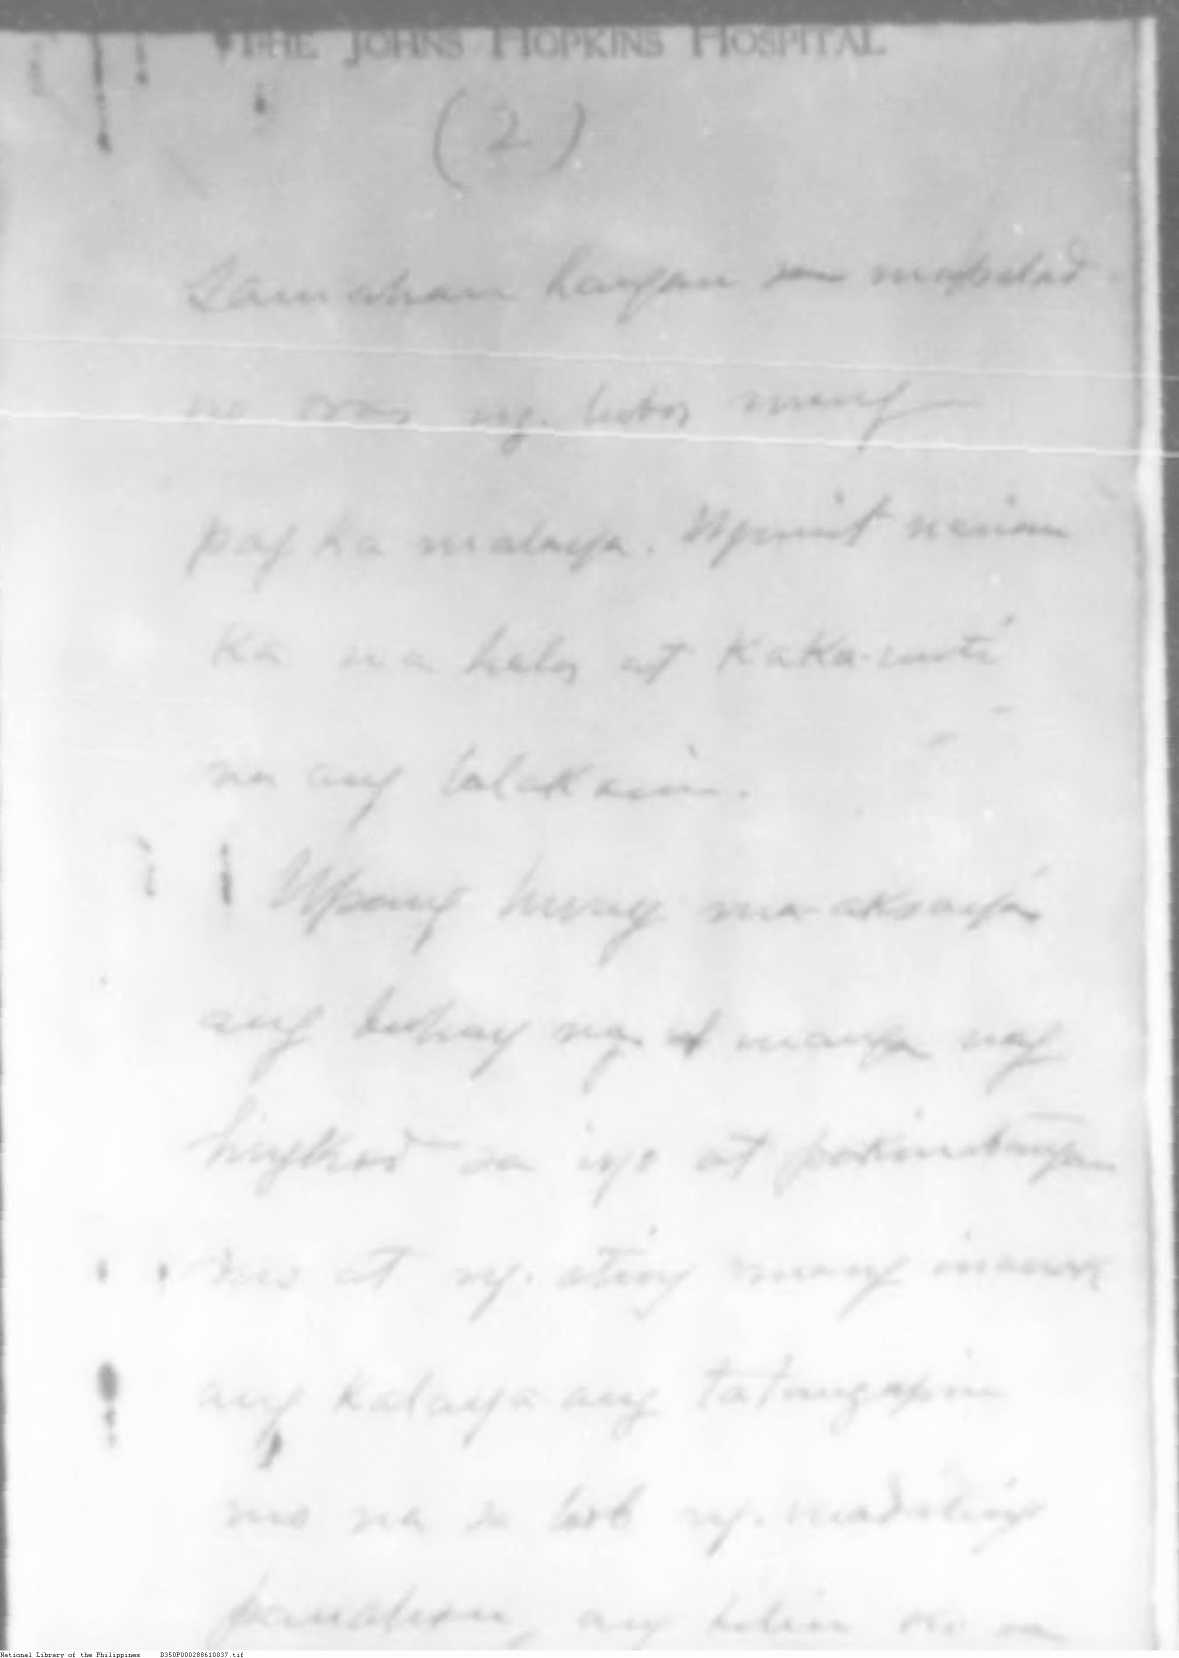 THE JOHNS HOPKINS HOSPITAL
(2)
Samahan hangan sa mapalad
mo oras ng. lubos mong
pag ka malaya. Ngunit naiwan
ka na halos at kaka-unti
na ang lalakarin.
Upang huwag ma-aksaya
ang buhay ng manga nag
hirap sa iyo at pakinabangan
mo at ng. ating mang inanak
ang kalaya-ang tatangapin
mo na sa loob ng. madaling
panahon, ang bilin ko sa
National Library of the Philippines D350P000288610037.tif